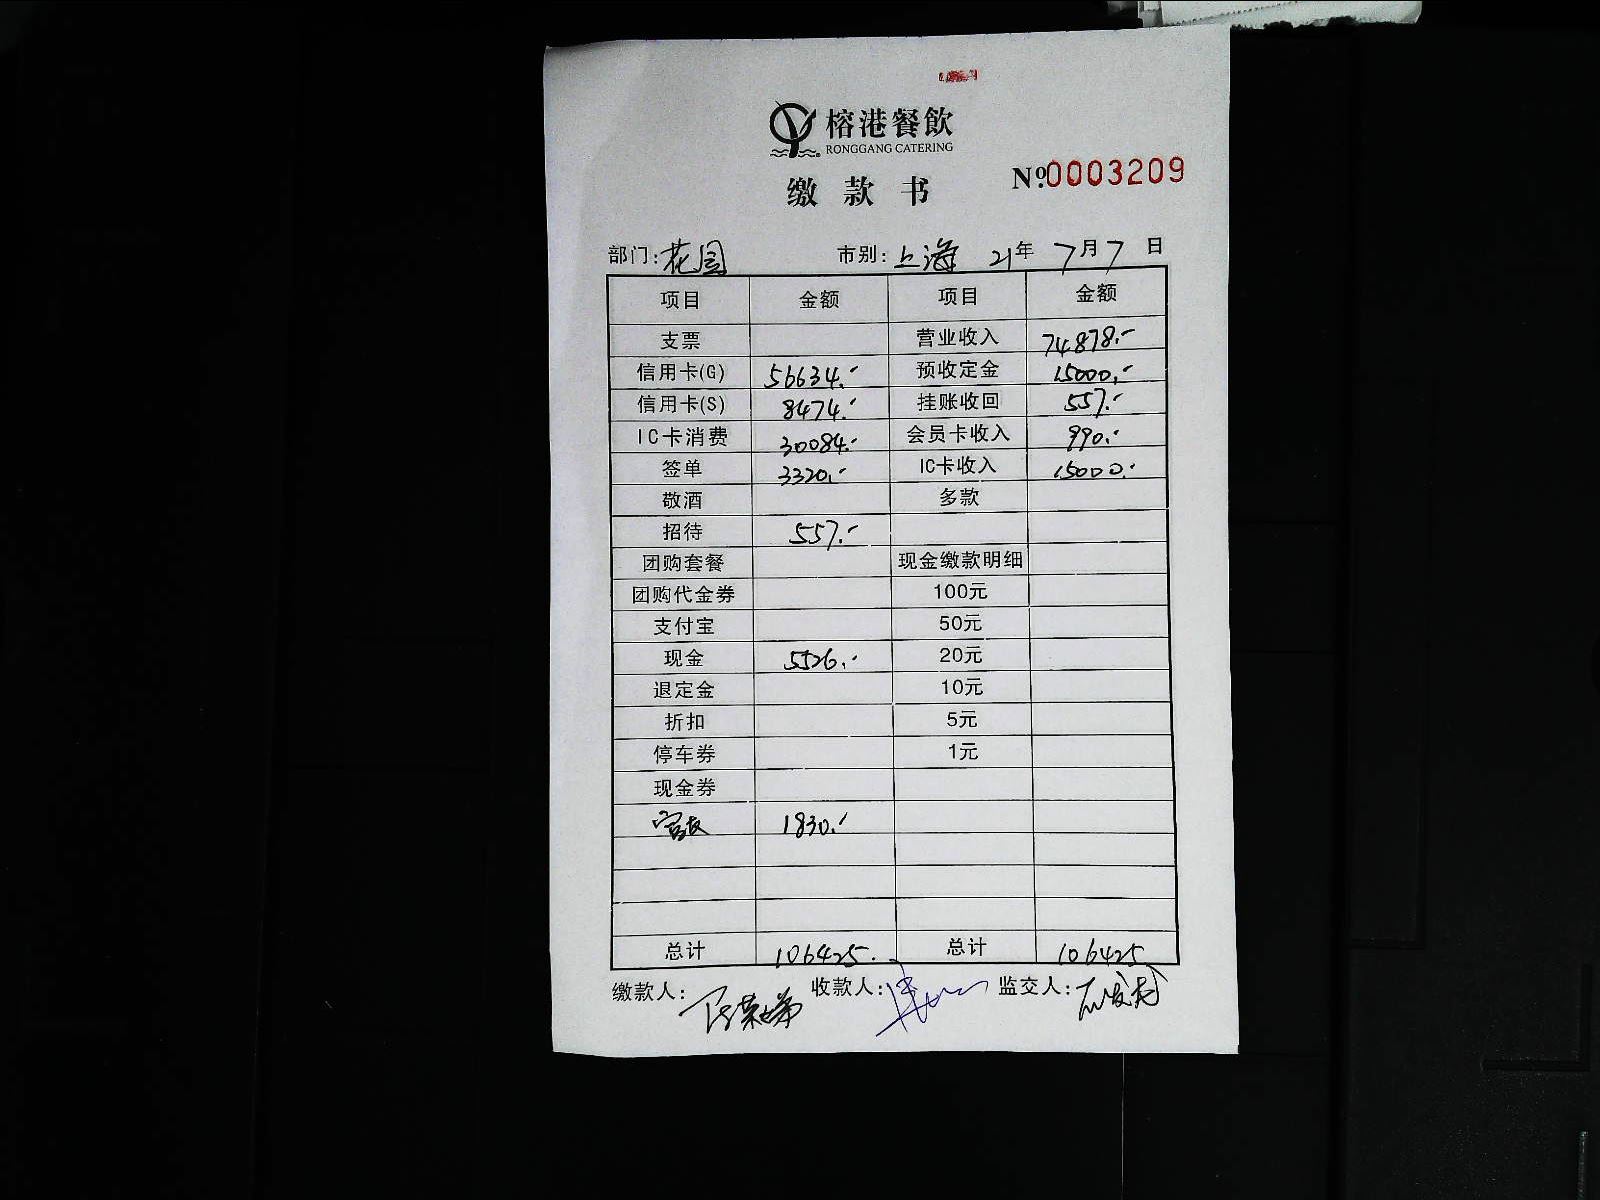 榕港餐飲
RONGGANG CATERING
缴款书
Nº.0003209
部门:花园 市别:上海 21年7月7日
项目 金额 项目 金额
支票 营业收入 74878.-
信用卡(G) 56634.- 预收定金 15000.-
信用卡(S) 8474.- 挂账收回 557.-
IC卡消费 30084.- 会员卡收入 990.-
签单 3320.- IC卡收入 15000.-
敬酒 多款
招待 557.-
团购套餐 现金缴款明细
团购代金券 100元
支付宝 50元
现金 5526.- 20元
退定金 10元
折扣 5元
停车券 1元
现金券
1830.-
总计 106425.- 总计 106425
缴款人: 收款人: 监交人: